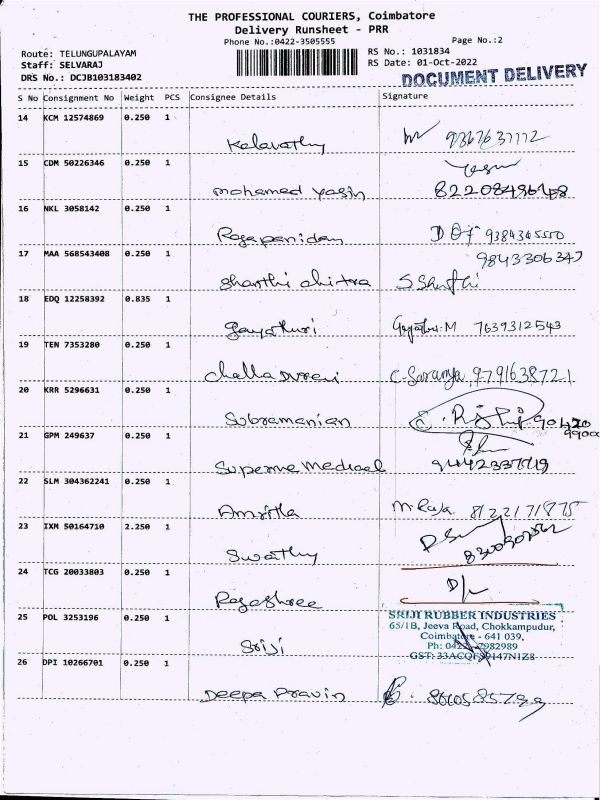 THE PROFESSIONAL COURIERS, Coimbatore
Delivery Runsheet - PRR
Phone No.:0422-3505555
Page No.:2
Route: TELUNGUPALAYAM
RS No.: 1031834
Staff: SELVARAJ
RS Date: 01-Oct-2022
DRS No.: DCJB103183402
DOCUMENT DELIVERY
S No Consignment No Weight PCS Consignee Details Signature
14 KCM 12574869 0.250 1
Kalavathy
15 CDM 50226346 0.250 1
mohamed yasin
16 NKL 3058142 0.250 1
9384345550
17 MAA 568543408 0.250 1
Shanthi chitra
18 EDQ 12258392 0.835 1
Gayathri M 7639312543
19 TEN 7353280 0.250 1
C-Saranya, 9791638721
20 KRR 5296631 0.250 1
Subramanian
21 GPM 249637 0.250 1
Superme medical
22 SLM 304362241 0.250 1
Amritha M.Raja.
23 IXM 50164710 2.250 1
Swathy
24 TCG 20033803 0.250 1
Rajashree
25 POL 3253196 0.250 1
Sriji
SRIJI RUBBER INDUSTRIES
65/1B, Jeeva Road, Chokkampudur,
Coimbatore - 641 039,
26 DPI 10266701 0.250 1
Deepa Pravin